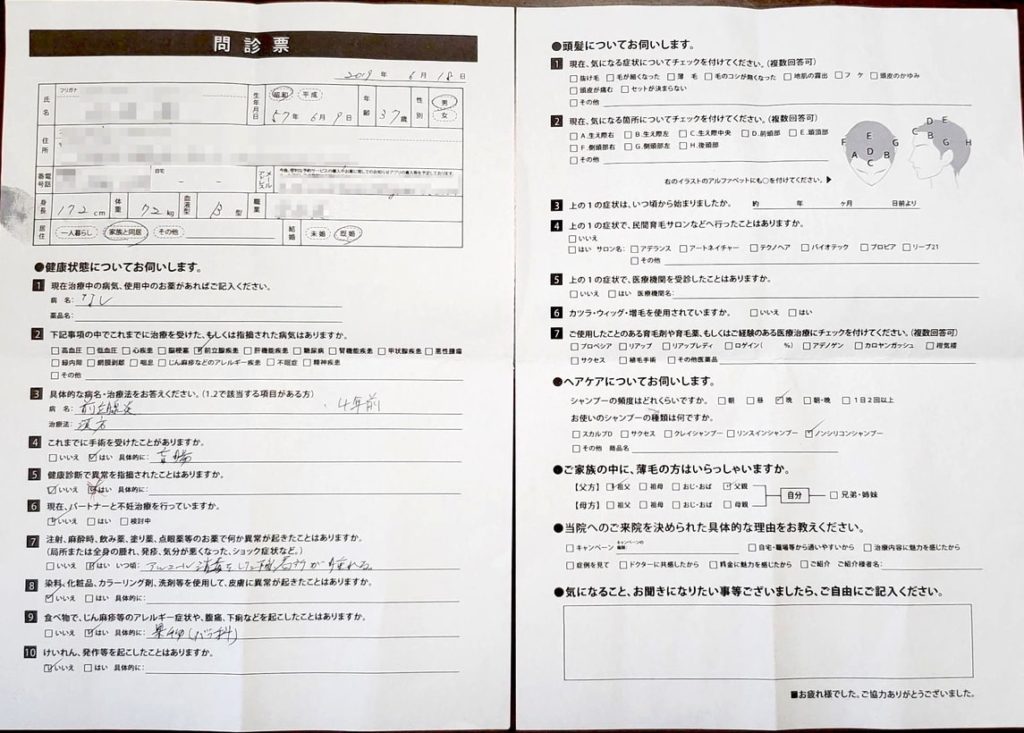 問診票
2019 年 6 月 18 日
フリガナ
氏名
生年月日 昭和 平成
57年 6月 9日
年齢 37歳
性別 男 女
住所
電話番号 自宅 - -
メールアドレス
身長 172 cm 体重 72 kg 血液型 B 型 職業
居住 一人暮らし 家族と同居 その他 結婚 未婚 既婚
●健康状態についてお伺いします。
1 現在治療中の病気、使用中のお薬があればご記入ください。
病 名: なし
薬品名:
2 下記事項の中でこれまでに治療を受けた、もしくは指摘された病気はありますか。
□高血圧 □低血圧 □心疾患 □脳梗塞 ☑前立腺疾患 □肝機能疾患 □糖尿病 □腎機能疾患 □甲状腺疾患 □悪性腫瘍
□緑内障 □網膜剥離 □喘息 □じん麻疹などのアレルギー疾患 □不眠症 □精神疾患
□その他
3 具体的な病名・治療法をお答えください。(1.2で該当する項目がある方)
病 名: 前立腺炎 ・4年前
治療法: 漢方
4 これまでに手術を受けたことがありますか。
□いいえ ☑はい 具体的に: 盲腸
5 健康診断で異常を指摘されたことはありますか。
☑いいえ □はい 具体的に:
6 現在、パートナーと不妊治療を行っていますか。
☑いいえ □はい □検討中
7 注射、麻酔時、飲み薬、塗り薬、点眼薬等のお薬で何か異常が起きたことはありますか。
(局所または全身の腫れ、発疹、気分が悪くなった、ショック症状など。)
□いいえ ☑はい いつ頃: アルコール消毒をした機
8 染料、化粧品、カラーリング剤、洗剤等を使用して、皮膚に異常が起きたことはありますか。
☑いいえ □はい 具体的に:
9 食べ物で、じん麻疹等のアレルギー症状や、腹痛、下痢などを起こしたことはありますか。
□いいえ ☑はい 具体的に: 果物(バラ科)
10 けいれん、発作等を起こしたことはありますか。
☑いいえ □はい 具体的に:
●頭髪についてお伺いします。
1 現在、気になる症状についてチェックを付けてください。(複数回答可)
□抜け毛 □毛が細くなった □薄 毛 □毛のコシが無くなった □地肌の露出 □フ ケ □頭皮のかゆみ
□頭皮が痛む □セットが決まらない
□その他
2 現在、気になる箇所についてチェックを付けてください。(複数回答可)
□A.生え際右 □B.生え際左 □C.生え際中央 □D.前頭部 □E.頭頂部
□F.側頭部右 □G.側頭部左 □H.後頭部
□その他
E F G D A B C
D E C B F G H
右のイラストのアルファベットにも○を付けてください。▶
3 上の1の症状は、いつ頃から始まりましたか。 約 年 ヶ月 日前より
4 上の1の症状で、民間育毛サロンなどへ行ったことはありますか。
□いいえ
□はい サロン名: □アデランス □アートネイチャー □テクノヘア □バイオテック □プロピア □リーブ21
□その他
5 上の1の症状で、医療機関を受診したことはありますか。
□いいえ □はい 医療機関名:
6 カツラ・ウィッグ・増毛を使用されていますか。 □いいえ □はい
7 ご使用したことのある育毛剤や育毛薬、もしくはご経験のある医療治療にチェックを付けてください。(複数回答可)
□プロペシア □リアップ □リアップレディ □ロゲイン( %) □アデノゲン □カロヤンガッシュ □柑気楼
□サクセス □植毛手術 □その他医薬品
●ヘアケアについてお伺いします。
シャンプーの頻度はどれくらいですか。 □朝 □昼 ☑晩 □朝・晩 □1日2回以上
お使いのシャンプーの種類は何ですか。
□スカルプD □サクセス □クレイシャンプー □リンスインシャンプー ☑ノンシリコンシャンプー
□その他 商品名
●ご家族の中に、薄毛の方はいらっしゃいますか。
【父方】 ☑祖父 □祖母 □おじ・おば ☑父親
自分 □兄弟・姉妹
【母方】 □祖父 □祖母 □おじ・おば □母親
●当院へのご来院を決められた具体的な理由をお教えください。
□キャンペーン □自宅・職場等から通いやすいから □治療内容に魅力を感じたから
□症例を見て □ドクターに共感したから □料金に魅力を感じたから □ご紹介 ご紹介者様名:
●気になること、お聞きになりたい事等ございましたら、ご自由にご記入ください。
■お疲れ様でした。ご協力ありがとうございました。